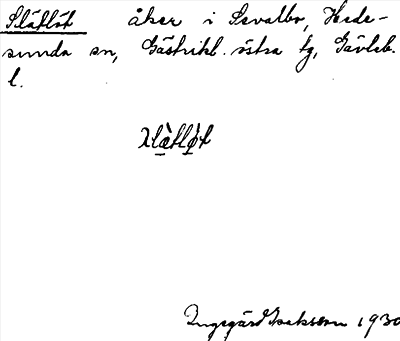 Slätlöt åker i Sevallbo, Hede-
sunda sn, Gästrikl. östra tg, Gävleb.
l.
Ingegärd Isaksson 1930